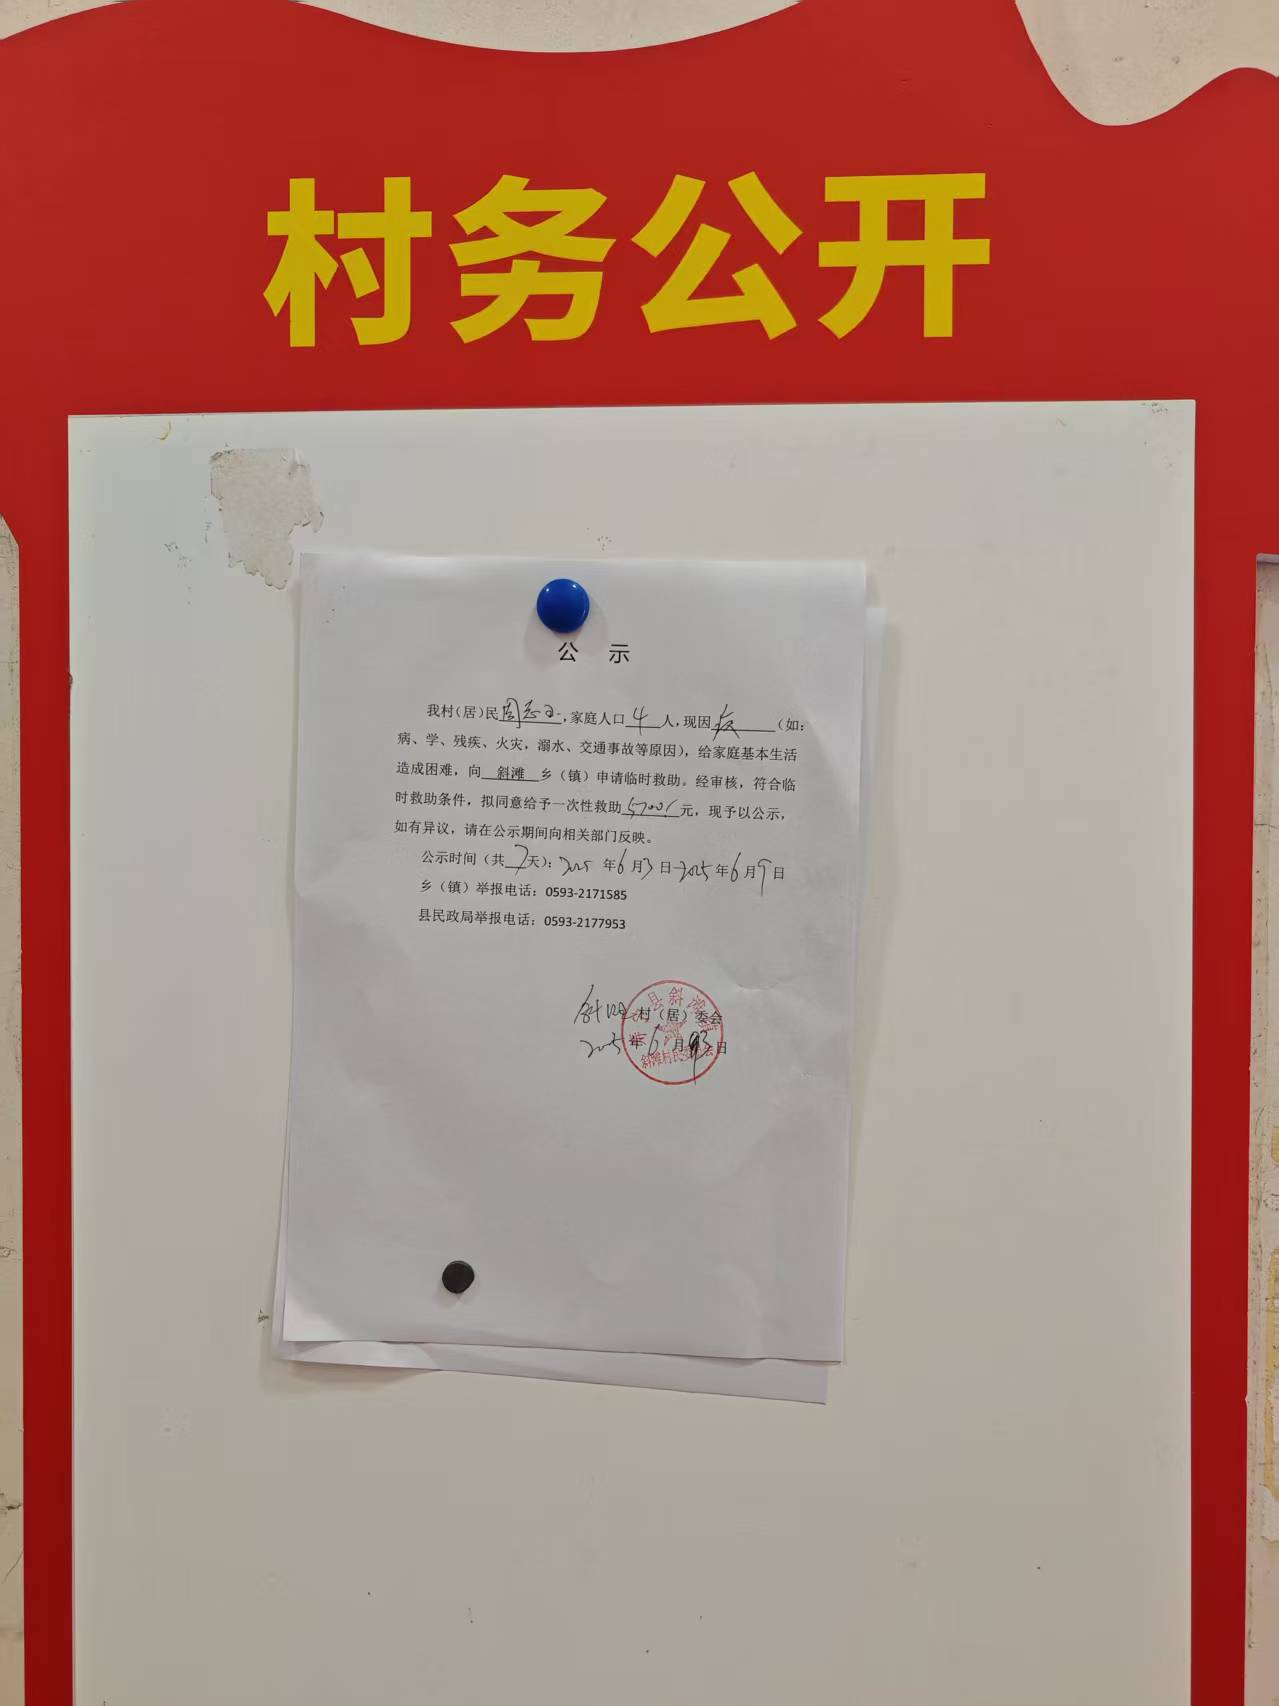 村务公开
公 示
我村(居)民周志卫,家庭人口4人,现因病(如:
病、学、残疾、火灾,溺水、交通事故等原因),给家庭基本生活
造成困难,向斜滩乡(镇)申请临时救助。经审核,符合临
时救助条件,拟同意给予一次性救助元,现予以公示,
如有异议,请在公示期间向相关部门反映。
公示时间(共7天):2025年6月3日-2025年6月9日
乡(镇)举报电话:0593-2171585
县民政局举报电话:0593-2177953
斜滩村(居)委会
2025年6月3日
县斜滩镇
斜滩村民委员会